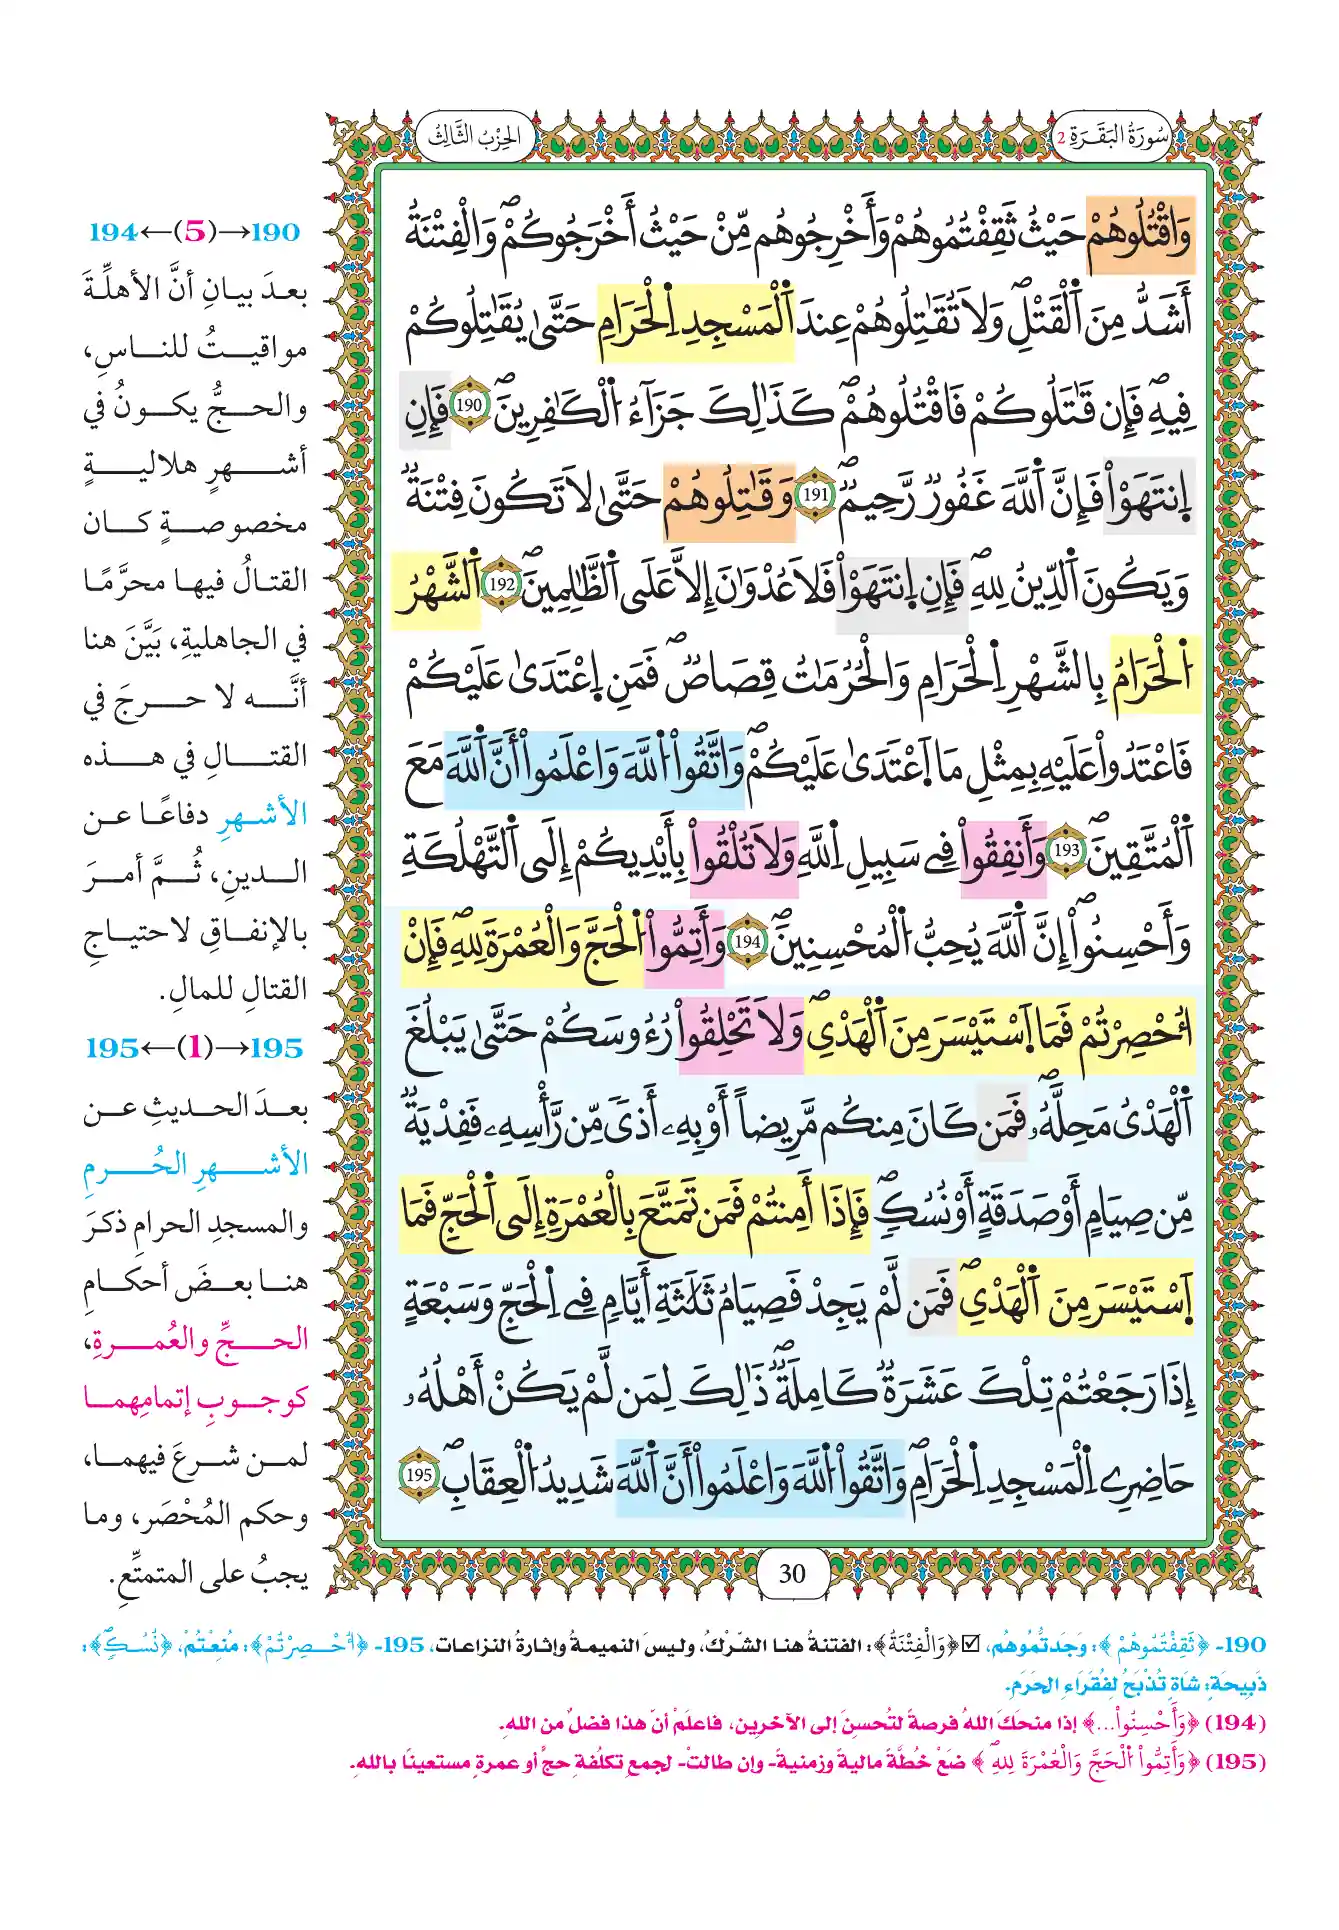 سُورَةُ البَقَرَةِ 2
الحِزْبُ الثَّالِثُ
وَاقْتُلُوهُمْ حَيْثُ ثَقِفْتُمُوهُمْ وَأَخْرِجُوهُم مِّنْ حَيْثُ أَخْرَجُوكُمْۖ وَالْفِتْنَةُ
أَشَدُّ مِنَ اَ۬لْقَتْلِۖ وَلَا تُقَٰتِلُوهُمْ عِندَ اَ۬لْمَسْجِدِ اِ۬لْحَرَامِ حَتَّىٰ يُقَٰتِلُوكُمْ
فِيهِۖ فَإِن قَٰتَلُوكُمْ فَاقْتُلُوهُمْۖ كَذَٰلِكَ جَزَآءُ اُ۬لْكَٰفِرِينَۖ 190 فَإِنِ
اِ۪نتَهَوْاْ فَإِنَّ اَ۬للَّهَ غَفُورٞ رَّحِيمٞۖ 191 وَقَٰتِلُوهُمْ حَتَّىٰ لَا تَكُونَ فِتْنَةٞ
وَيَكُونَ اَ۬لدِّينُ لِلهِۖ فَإِنِ اِ۪نتَهَوْاْ فَلَا عُدْوَٰنَ إِلَّا عَلَى اَ۬لظَّٰلِمِينَۖ 192 اَ۬لشَّهْرُ
اُ۬لْحَرَامُ بِالشَّهْرِ اِ۬لْحَرَامِ وَالْحُرُمَٰتُ قِصَاصٞۖ فَمَنِ اِ۪عْتَدَىٰ عَلَيْكُمْ
فَاعْتَدُواْ عَلَيْهِ بِمِثْلِ مَا اَ۪عْتَدَىٰ عَلَيْكُمْۖ وَاتَّقُواْ اُ۬للَّهَ وَاعْلَمُواْ أَنَّ اَ۬للَّهَ مَعَ
اَ۬لْمُتَّقِينَۖ 193 وَأَنفِقُواْ فِي سَبِيلِ اِ۬للَّهِ وَلَا تُلْقُواْ بِأَيْدِيكُمْ إِلَى اَ۬لتَّهْلُكَةِ
وَأَحْسِنُوٓاْۖ إِنَّ اَ۬للَّهَ يُحِبُّ اُ۬لْمُحْسِنِينَۖ 194 وَأَتِمُّواْ اُ۬لْحَجَّ وَالْعُمْرَةَ لِلهِۖ فَإِنْ
اُ۟حْصِرْتُمْ فَمَا اَ۪سْتَيْسَرَ مِنَ اَ۬لْهَدْيِۖ وَلَا تَحْلِقُواْ رُءُوسَكُمْ حَتَّىٰ يَبْلُغَ
اَ۬لْهَدْيُ مَحِلَّهُۥۖ فَمَن كَانَ مِنكُم مَّرِيضاً أَوْ بِهِۦ أَذىٗ مِّن رَّأْسِهِۦ فَفِدْيَةٞ
مِّن صِيَامٍ أَوْ صَدَقَةٍ أَوْ نُسُكٖۖ فَإِذَا أَمِنتُمْ فَمَن تَمَتَّعَ بِالْعُمْرَةِ إِلَى اَ۬لْحَجِّ فَمَا
اَ۪سْتَيْسَرَ مِنَ اَ۬لْهَدْيِۖ فَمَن لَّمْ يَجِدْ فَصِيَامُ ثَلَٰثَةِ أَيَّامٖ فِي اِ۬لْحَجِّ وَسَبْعَةٍ
إِذَا رَجَعْتُمْ تِلْكَ عَشَرَةٞ كَامِلَةٞۖ ذَٰلِكَ لِمَن لَّمْ يَكُنْ أَهْلُهُۥ
حَاضِرِي اِ۬لْمَسْجِدِ اِ۬لْحَرَامِۖ وَاتَّقُواْ اُ۬للَّهَ وَاعْلَمُواْ أَنَّ اَ۬للَّهَ شَدِيدُ اُ۬لْعِقَابِۖ 195
30
190→(5)←194
بعدَ بيانِ أنَّ الأهلَّةَ
مواقيتُ للناسِ،
والحجُّ يكونُ في
أشهرٍ هلاليةٍ
مخصوصةٍ كان
القتالُ فيها محرَّمًا
في الجاهليةِ، بَيَّنَ هنا
أنَّه لا حرجَ في
القتالِ في هذه
الأشهرِ دفاعًا عن
الدينِ، ثُمَّ أمرَ
بالإنفاقِ لاحتياجِ
القتالِ للمالِ.
195→(1)←195
بعدَ الحديثِ عن
الأشهرِ الحُرمِ
والمسجدِ الحرامِ ذكرَ
هنا بعضَ أحكامِ
الحجِّ والعُمرةِ،
كوجوبِ إتمامِهما
لمن شرعَ فيهما،
وحكم المُحْصَر، وما
يجبُ على المتمتِّعِ.
190- ﴿ثَقِفْتُمُوهُمْ﴾: وَجَدتُّمُوهُم، ☑﴿وَالْفِتْنَةُ﴾: الفتنةُ هنا الشِّرْكُ، وليسَ النميمةُ وإثارةُ النزاعات، 195- ﴿اُ۟حْصِرْتُمْ﴾: مُنِعْتُمْ، ﴿نُسُكٖۖ﴾:
ذَبِيحَةٍ؛ شَاةٍ تُذْبَحُ لِفُقَرَاءِ الحَرَمِ.
(194) ﴿وَأَحْسِنُوٓاْ...﴾ إذا منحَكَ اللهُ فرصةً لتُحسنَ إلى الآخرين، فاعلَمْ أنّ هذا فضلٌ من اللهِ.
(195) ﴿وَأَتِمُّواْ اُ۬لْحَجَّ وَالْعُمْرَةَ لِلهِۖ﴾ ضَعْ خُطَّةً ماليةً وزمنيةً- وإن طالتْ- لجمعِ تكلُفةِ حجٍّ أو عمرةٍ مستعينًا باللهِ.